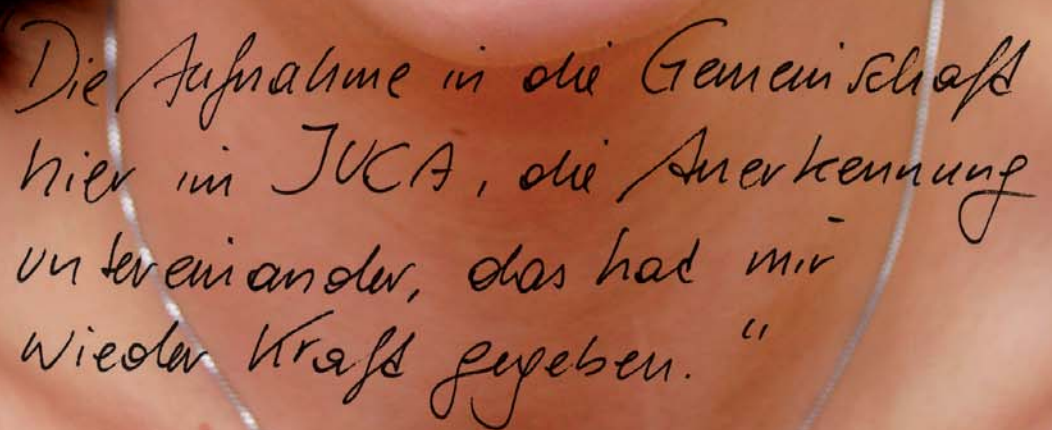 Die Aufnahme in die Gemeinschaft
hier im JUCA, die Anerkennung
untereinander, das hat mir
wieder Kraft gegeben."